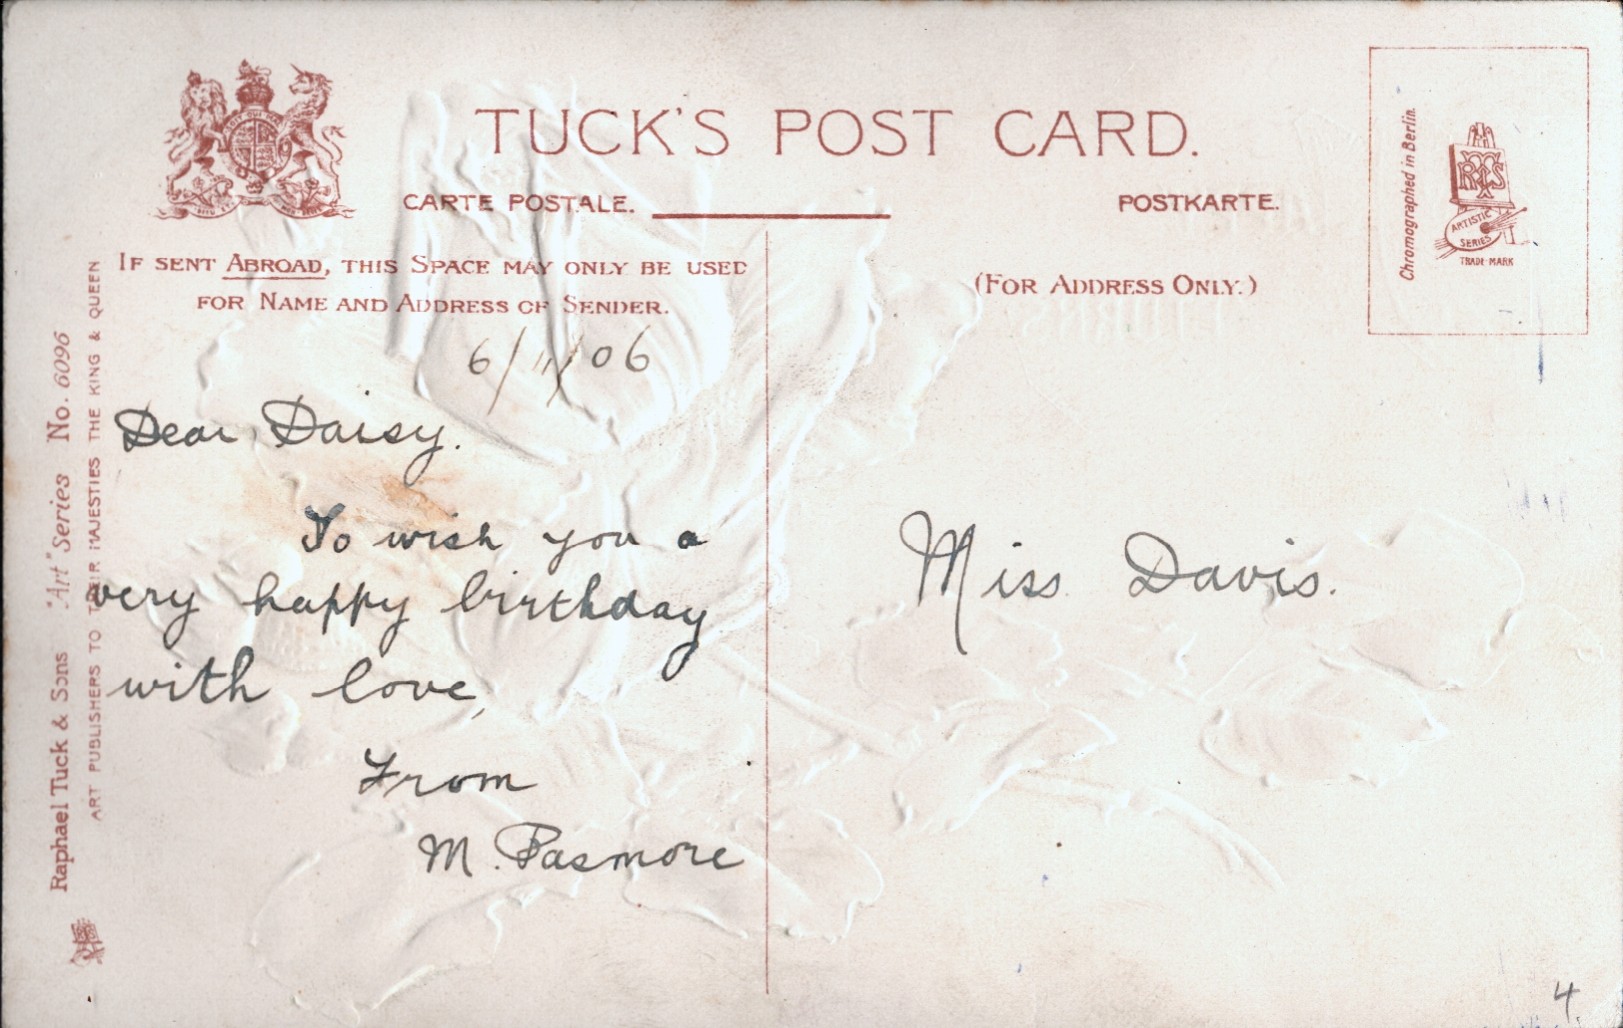 TUCK'S POST CARD.
CARTE POSTALE.
POSTKARTE.
IF SENT ABROAD, THIS SPACE MAY ONLY BE USED
FOR NAME AND ADDRESS OF SENDER.
(FOR ADDRESS ONLY.)
Chromographed in Berlin.
RTS
ARTISTIC
SERIES
TRADE MARK
6/11/06
Dear Daisy.
To wish you a
very happy birthday
with love,
From
M. Pasmore
Miss Davis.
Raphael Tuck & Sons "Art" Series No. 6096
ART PUBLISHERS TO THEIR MAJESTIES THE KING & QUEEN
4